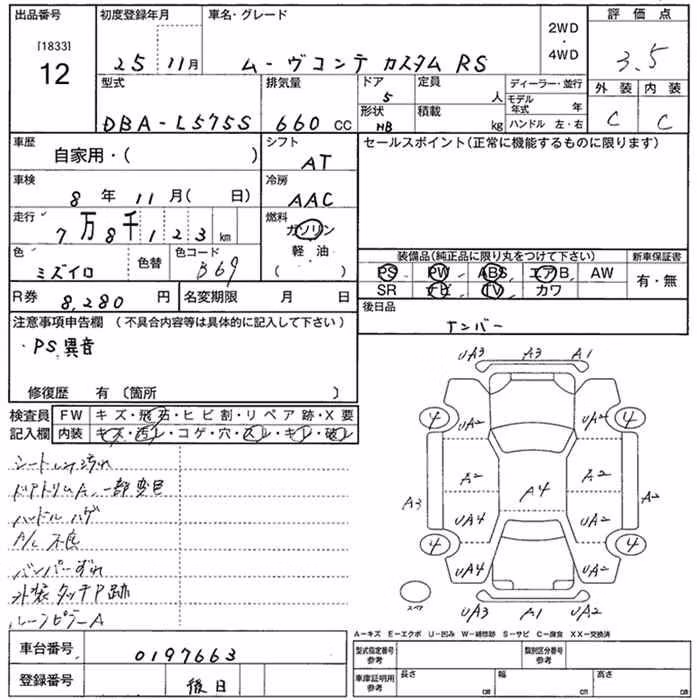 出品番号 初度登録年月 車名・グレード 評価点
[1833]
12
25 11月 ムーヴコンテ カスタム RS
2WD
・
4WD
3.5
外装 内装
C C
型式 排気量 ドア 定員 ディーラー・並行
DBA-L575S 660 CC 5 人
形状 積載 モデル年式 年
HB kg ハンドル 左・右
車歴 自家用・( )
シフト AT
セールスポイント(正常に機能するものに限ります)
車検 8年 11月( 日)
冷房 AAC
走行 7万8千123km
燃料 ガソリン
軽・油
( )
色 ミズイロ 色替 色コード B69
装備品(純正品に限り丸をつけて下さい) 新車保証書
PS PW ABS エアB AW 有・無
SR ナビ TV カワ
R券 8,280円 名変期限 月 日
後日品
ナンバー
注意事項申告欄 (不具合内容等は具体的に記入して下さい)
・PS異音
修復歴 有 〔箇所 〕
検査員 FW キズ・飛石・ヒビ割・リペア跡・X要
記入欄 内装 キズ・汚レ・コゲ・穴・スレ・キレ・破レ
ドアトリムA、一部変色
ハンドルハゲ
A/C不良
バンパーずれ
外装タッチP跡
ルーフピラーA
UA3 A3 A1
4 UA2 UA2 4
A3 A2 A2 A2
A4
UA4 UA4
4 4
UA4 UA2
スペア
UA3 A1 UA2
A-キズ E-エクボ U-凹み W-補修跡 S-サビ C-腐食 XX-交換済
車台番号 0197663
型式指定番号 参考 類別区分番号 参考
登録番号 後日
車庫証明用 参考 長さ cm 幅 cm 高さ cm